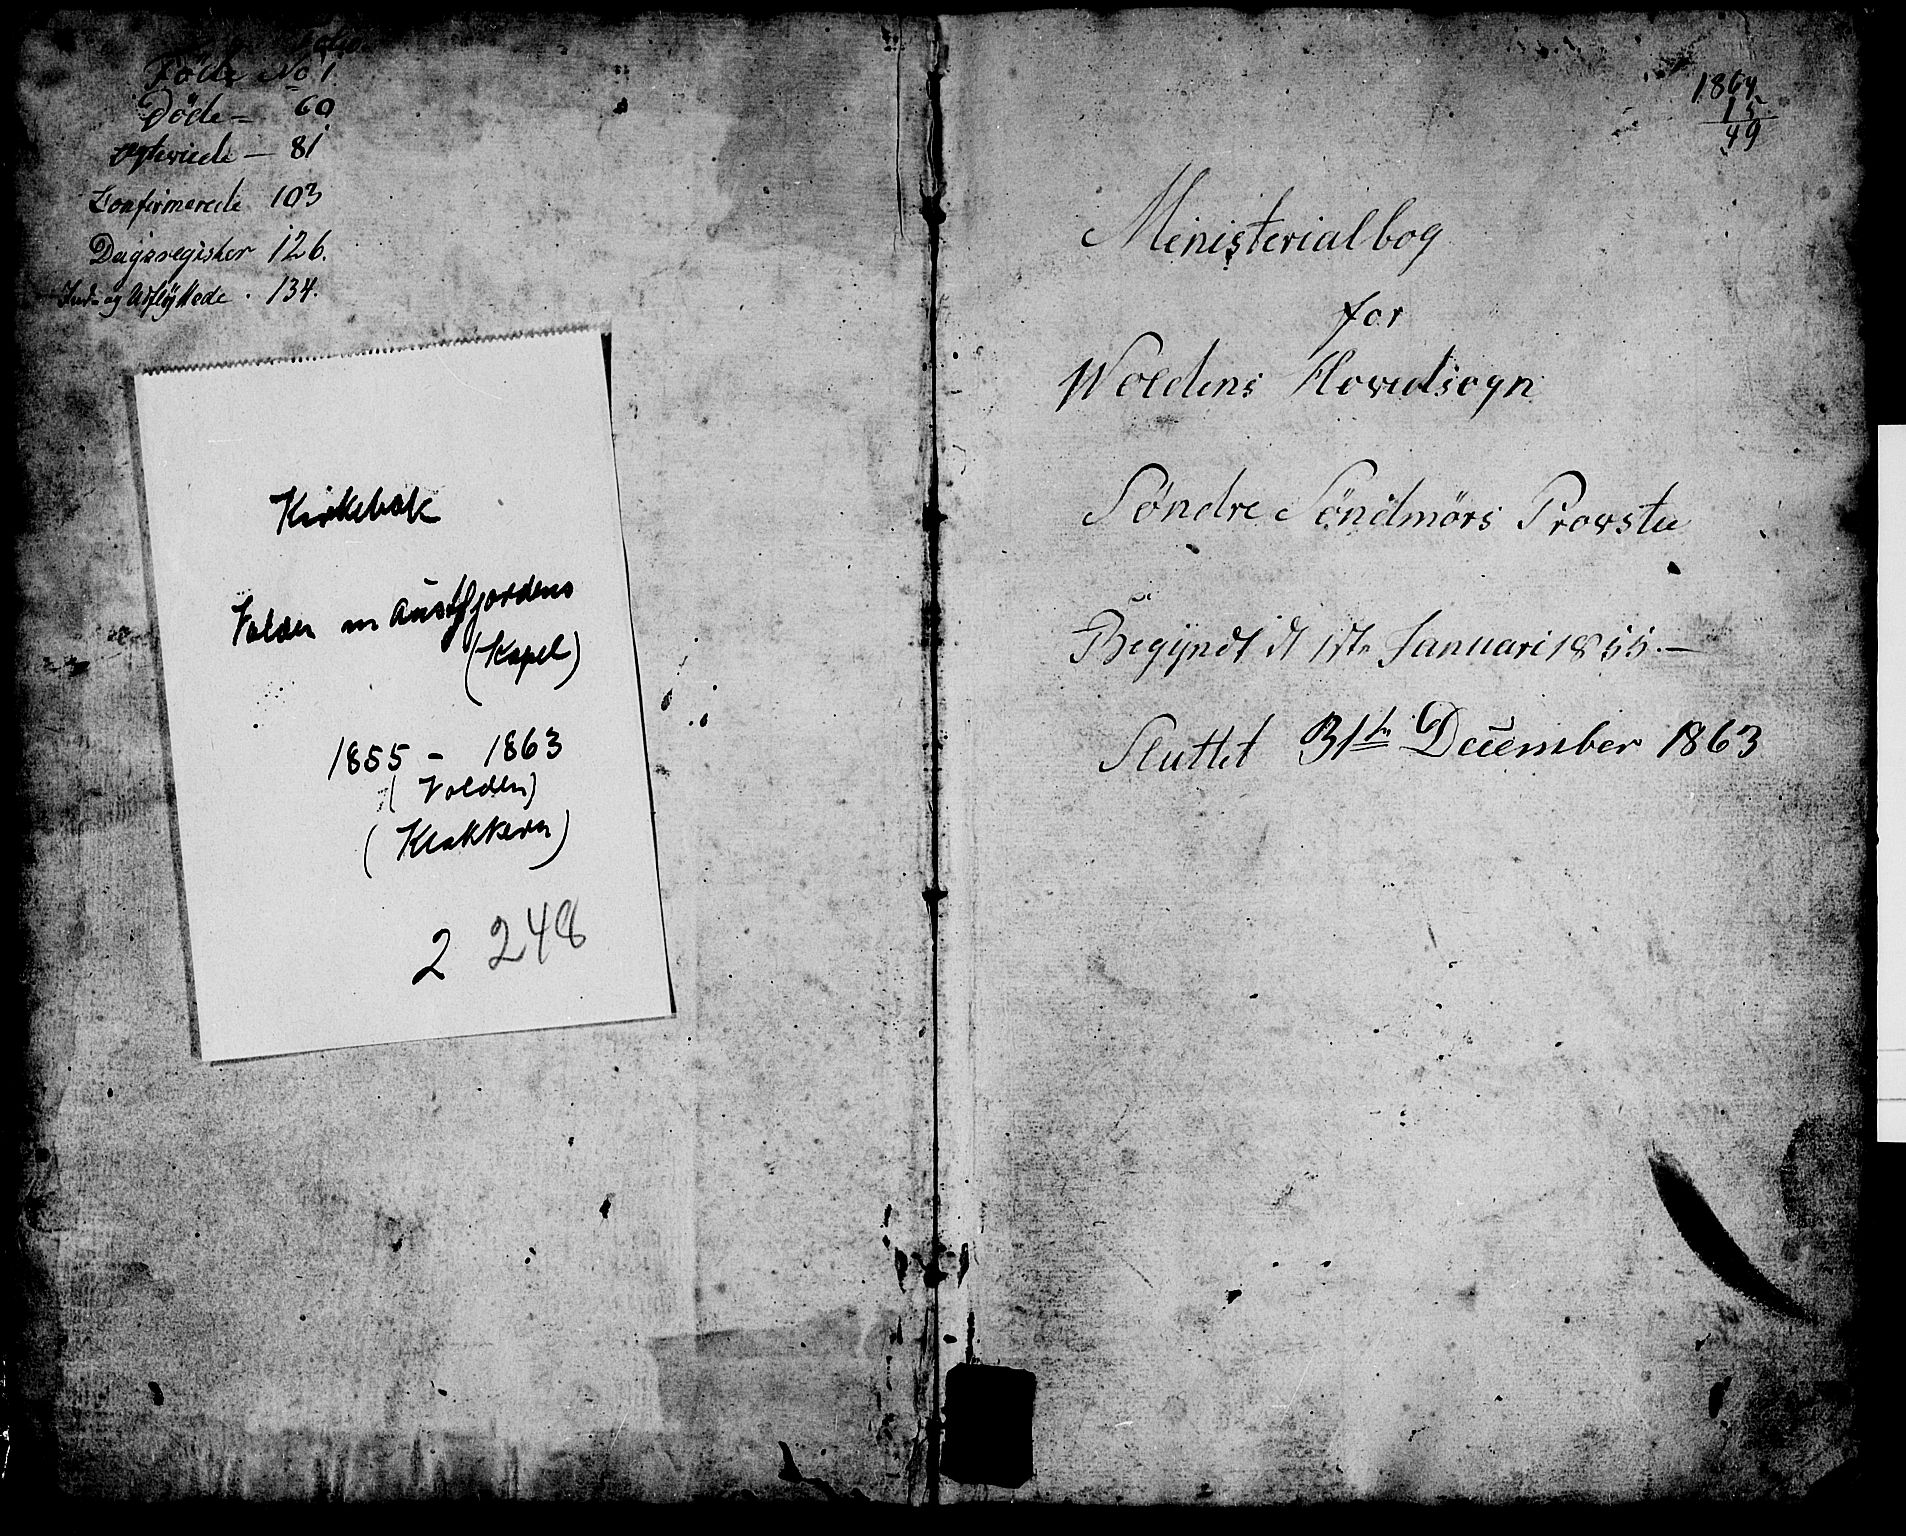 Föde No 1.
Döde = 60
Egteviede — 81
Confirmerede 103
Dagsregister 126.
Ind- og Udflyttede . 134.
Kirkebok
Volden m Austefjordens
(Kapel)
1855 - 1863
(Volden)
(Klokkern)
2 248
1864
15
49
Ministerialbog
for
Woldens Hovedsogn
Söndre Söndmörs Provstie
Begÿndt d 1ste Januari 1855.—
Sluttet 31te December 1863